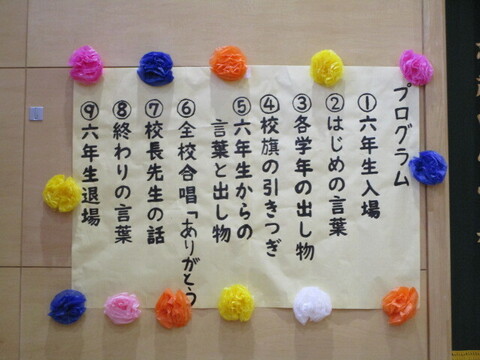 プログラム
①六年生入場
②はじめの言葉
③各学年の出し物
④校旗の引きつぎ
⑤六年生からの
言葉と出し物
⑥全校合唱「ありがとう
⑦校長先生の話
⑧終わりの言葉
⑨六年生退場